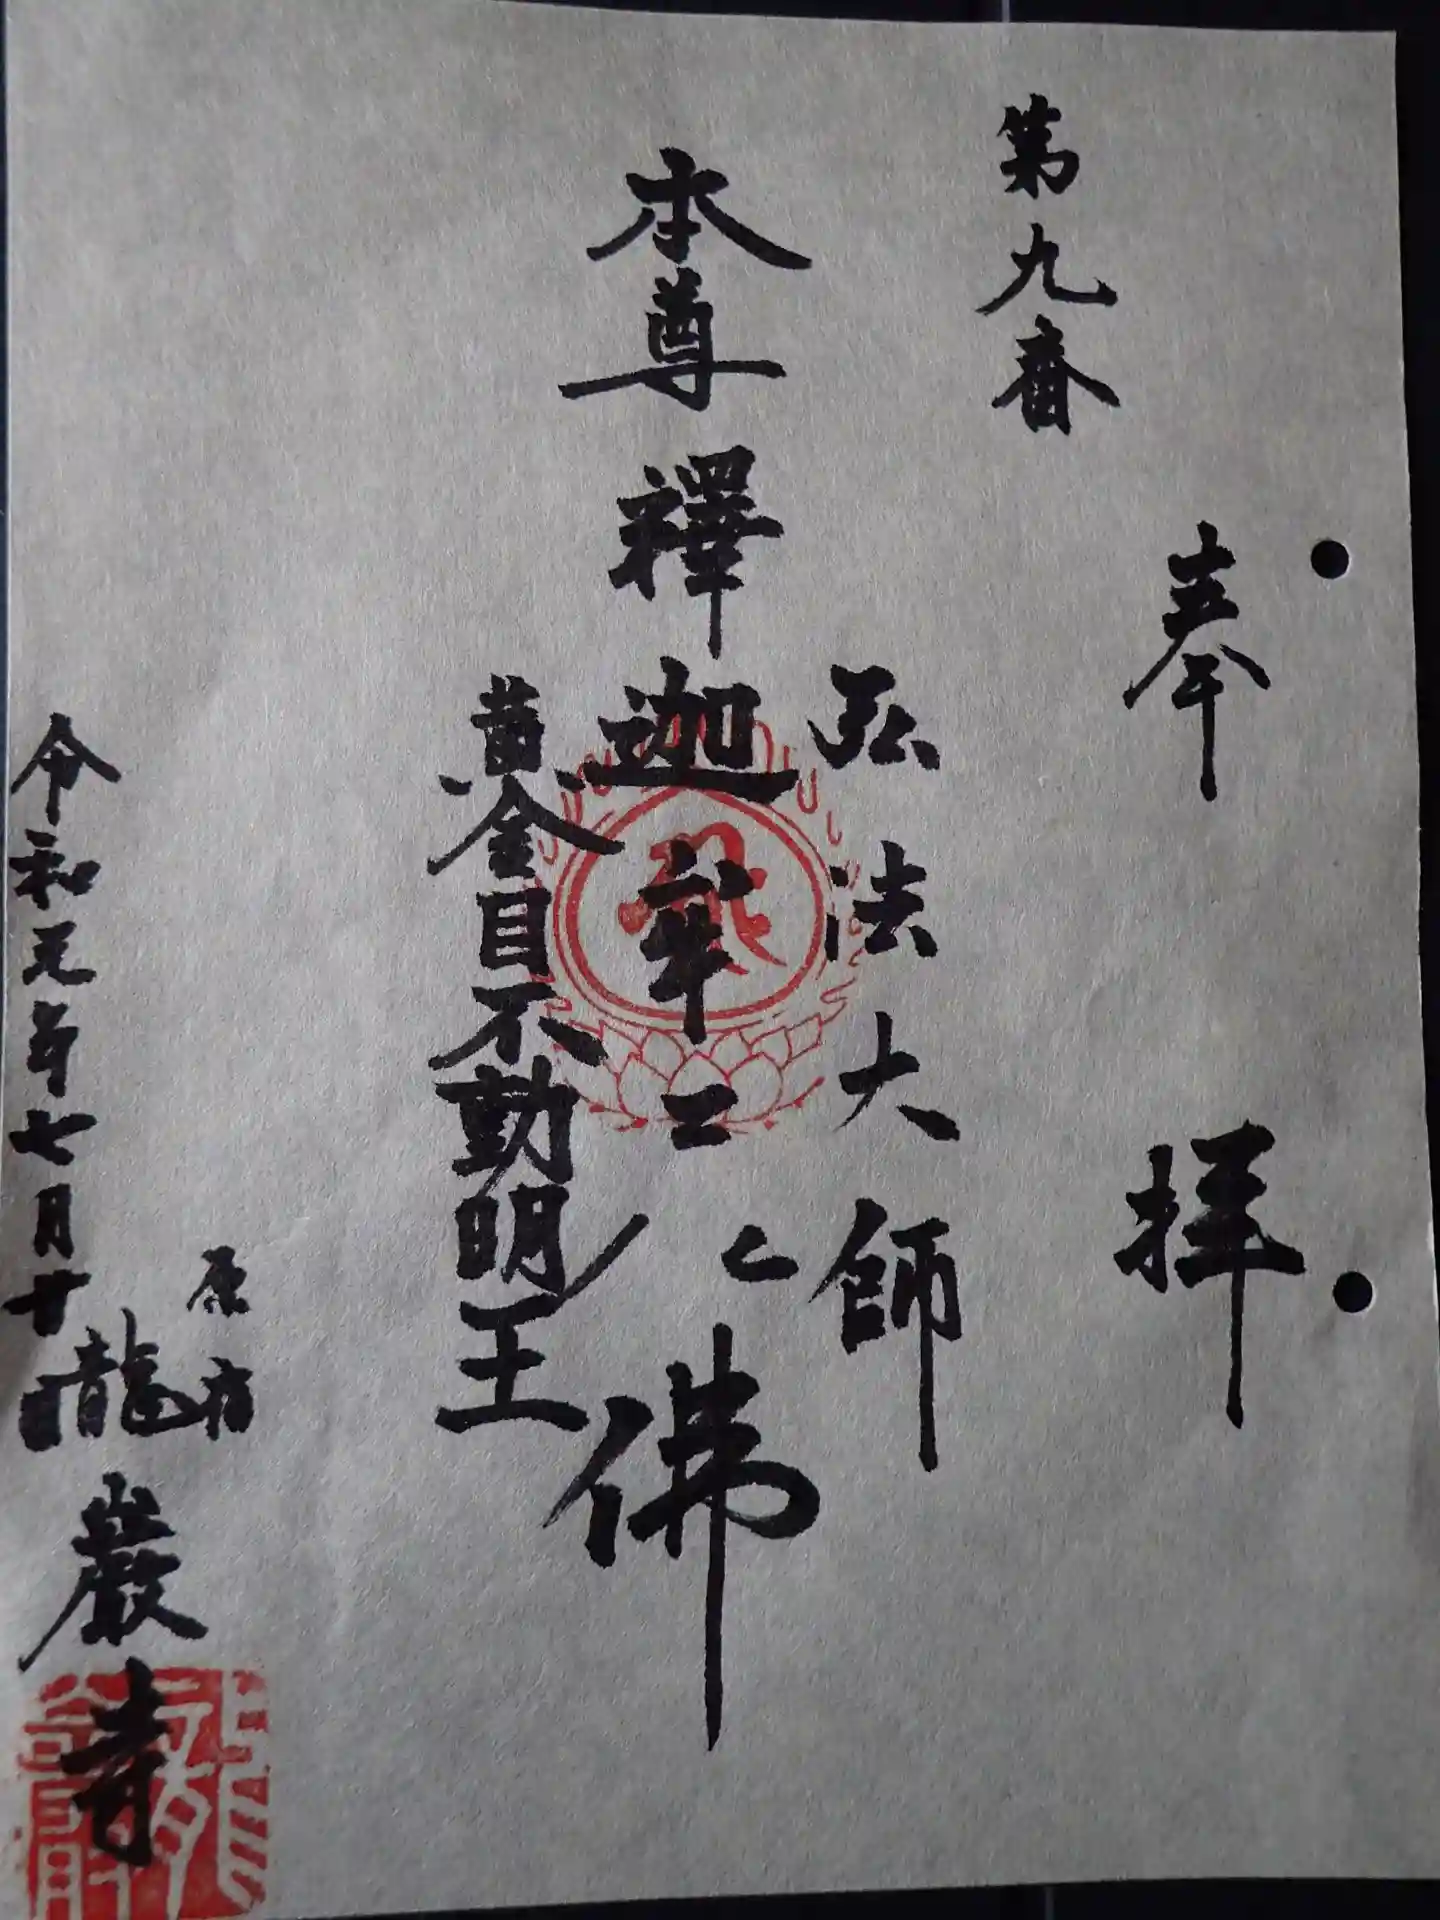 奉拝
第九番
弘法大師
本尊釋迦牟二仏佛
黄金目不動明王
原宿
龍巖寺
令和元年七月廿日